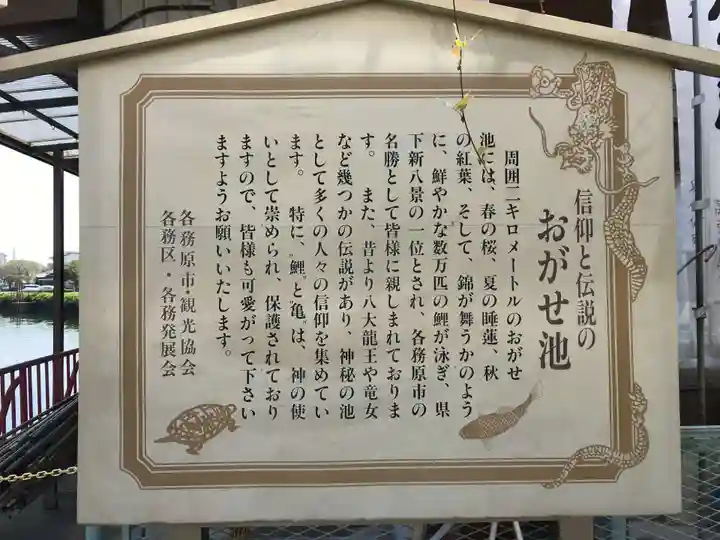 信仰と伝説の
おがせ池
周囲二キロメートルのおがせ
池には、春の桜、夏の睡蓮、秋
の紅葉、そして、錦が舞うかのよう
に、鮮やかな数万匹の鯉が泳ぎ、県
下新八景の一位とされ、各務原市の
名勝として皆様に親しまれておりま
す。　また、昔より八大龍王や竜女
など幾つかの伝説があり、神秘の池
として多くの人々の信仰を集めてい
ます。　特に、〝鯉〟と〝亀〟は、神の使
いとして崇められ、保護されており
ますので、皆様も可愛がって下さい
ますようお願いいたします。
各務原市・観光協会
各務区・各務発展会